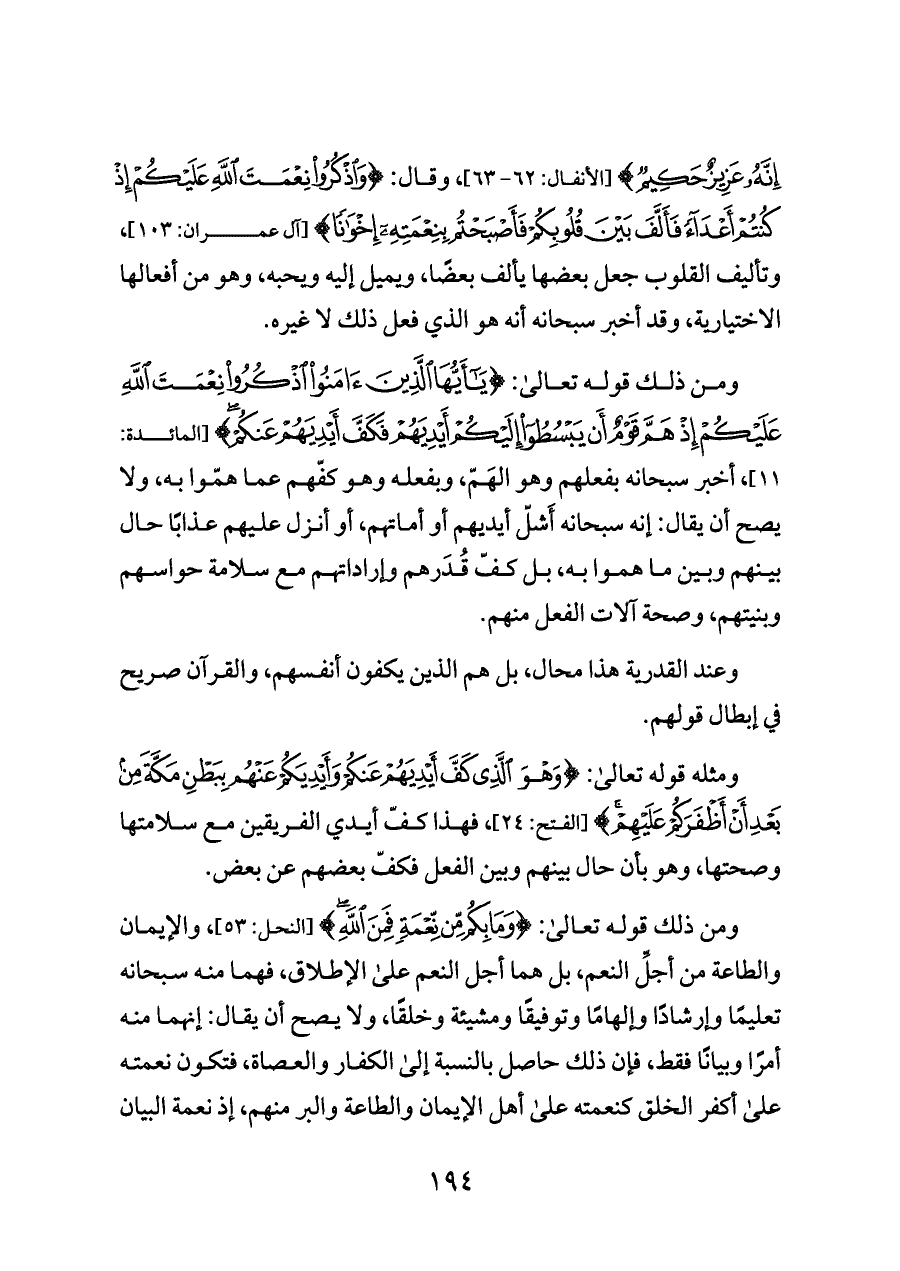 إِنَّهُۥ عَزِيزٌ حَكِيمٌ﴾ [الأنفال: ٦٢- ٦٣]، وقال: ﴿وَٱذْكُرُوا۟ نِعْمَتَ ٱللَّهِ عَلَيْكُمْ إِذْ
كُنتُمْ أَعْدَآءً فَأَلَّفَ بَيْنَ قُلُوبِكُمْ فَأَصْبَحْتُم بِنِعْمَتِهِۦٓ إِخْوَٰنًا﴾ [آل عمــــــــران: ١٠٣]،
وتأليف القلوب جعل بعضها يألف بعضًا، ويميل إليه ويحبه، وهو من أفعالها
الاختيارية، وقد أخبر سبحانه أنه هو الذي فعل ذلك لا غيره.
ومـن ذلـك قولـه تعـالىٰ: ﴿يَـٰٓأَيُّهَا ٱلَّذِينَ ءَامَنُوا۟ ٱذْكُرُوا۟ نِعْمَتَ ٱللَّهِ
عَلَيْكُمْ إِذْ هَمَّ قَوْمٌ أَن يَبْسُطُوٓا۟ إِلَيْكُمْ أَيْدِيَهُمْ فَكَفَّ أَيْدِيَهُمْ عَنكُمْ ۖ﴾ [المائـــدة:
١١]، أخبر سبحانه بفعلهم وهو الهَمّ، وبفعلـه وهـو كفّهـم عمـا همّوا بـه، ولا
يصح أن يقال: إنه سبحانه أَشلّ أيديهم أو أماتهم، أو أنـزل عليهم عـذابًا حـال
بيـنهم وبـين مـا همـوا بـه، بـل كـفّ قُـدَرهم وإراداتهـم مـع سـلامة حواسـهم
وبنيتهم، وصحة آلات الفعل منهم.
وعند القدرية هذا محال، بل هم الذين يكفون أنفسهم، والقـرآن صـريح
في إبطال قولهم.
ومثله قوله تعالىٰ: ﴿وَهُوَ ٱلَّذِى كَفَّ أَيْدِيَهُمْ عَنكُمْ وَأَيْدِيَكُمْ عَنْهُم بِبَطْنِ مَكَّةَ مِنۢ
بَعْدِ أَنْ أَظْفَرَكُمْ عَلَيْهِمْ ۚ﴾ [الفـتح: ٢٤]، فهـذا كـفّ أيـدي الفـريقين مـع سـلامتها
وصحتها، وهو بأن حال بينهم وبين الفعل فكفّ بعضهم عن بعض.
ومن ذلك قولـه تعـالىٰ: ﴿وَمَا بِكُم مِّن نِّعْمَةٍ فَمِنَ ٱللَّهِ ۖ﴾ [النحـل: ٥٣]، والإيمـان
والطاعة من أجلِّ النعم، بل هما أجل النعم علىٰ الإطلاق، فهمـا منـه سـبحانه
تعليمًا وإرشادًا وإلهامًا وتوفيقًا ومشيئة وخلقًا، ولا يـصح أن يقـال: إنهـما منـه
أمرًا وبيانًا فقط، فإن ذلك حاصل بالنسبة إلىٰ الكفـار والعـصاة، فتكـون نعمتـه
علىٰ أكفر الخلق كنعمته علىٰ أهل الإيمان والطاعة والبر منهم، إذ نعمة البيان
١٩٤